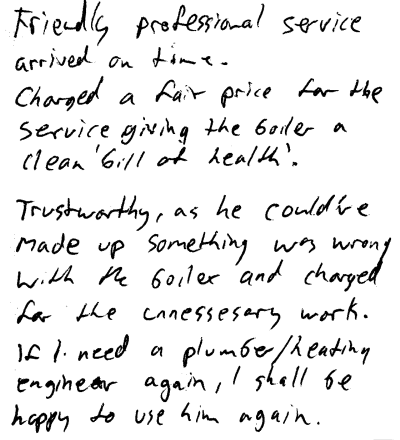 Friendly professional service
arrived on time.
Charged a fair price for the
service giving the boiler a
clean 'bill of health'.
Trustworthy, as he could've
made up something was wrong
with the boiler and charged
for the unnessesary work.
If I need a plumber/heating
engineer again, I shall be
happy to use him again.